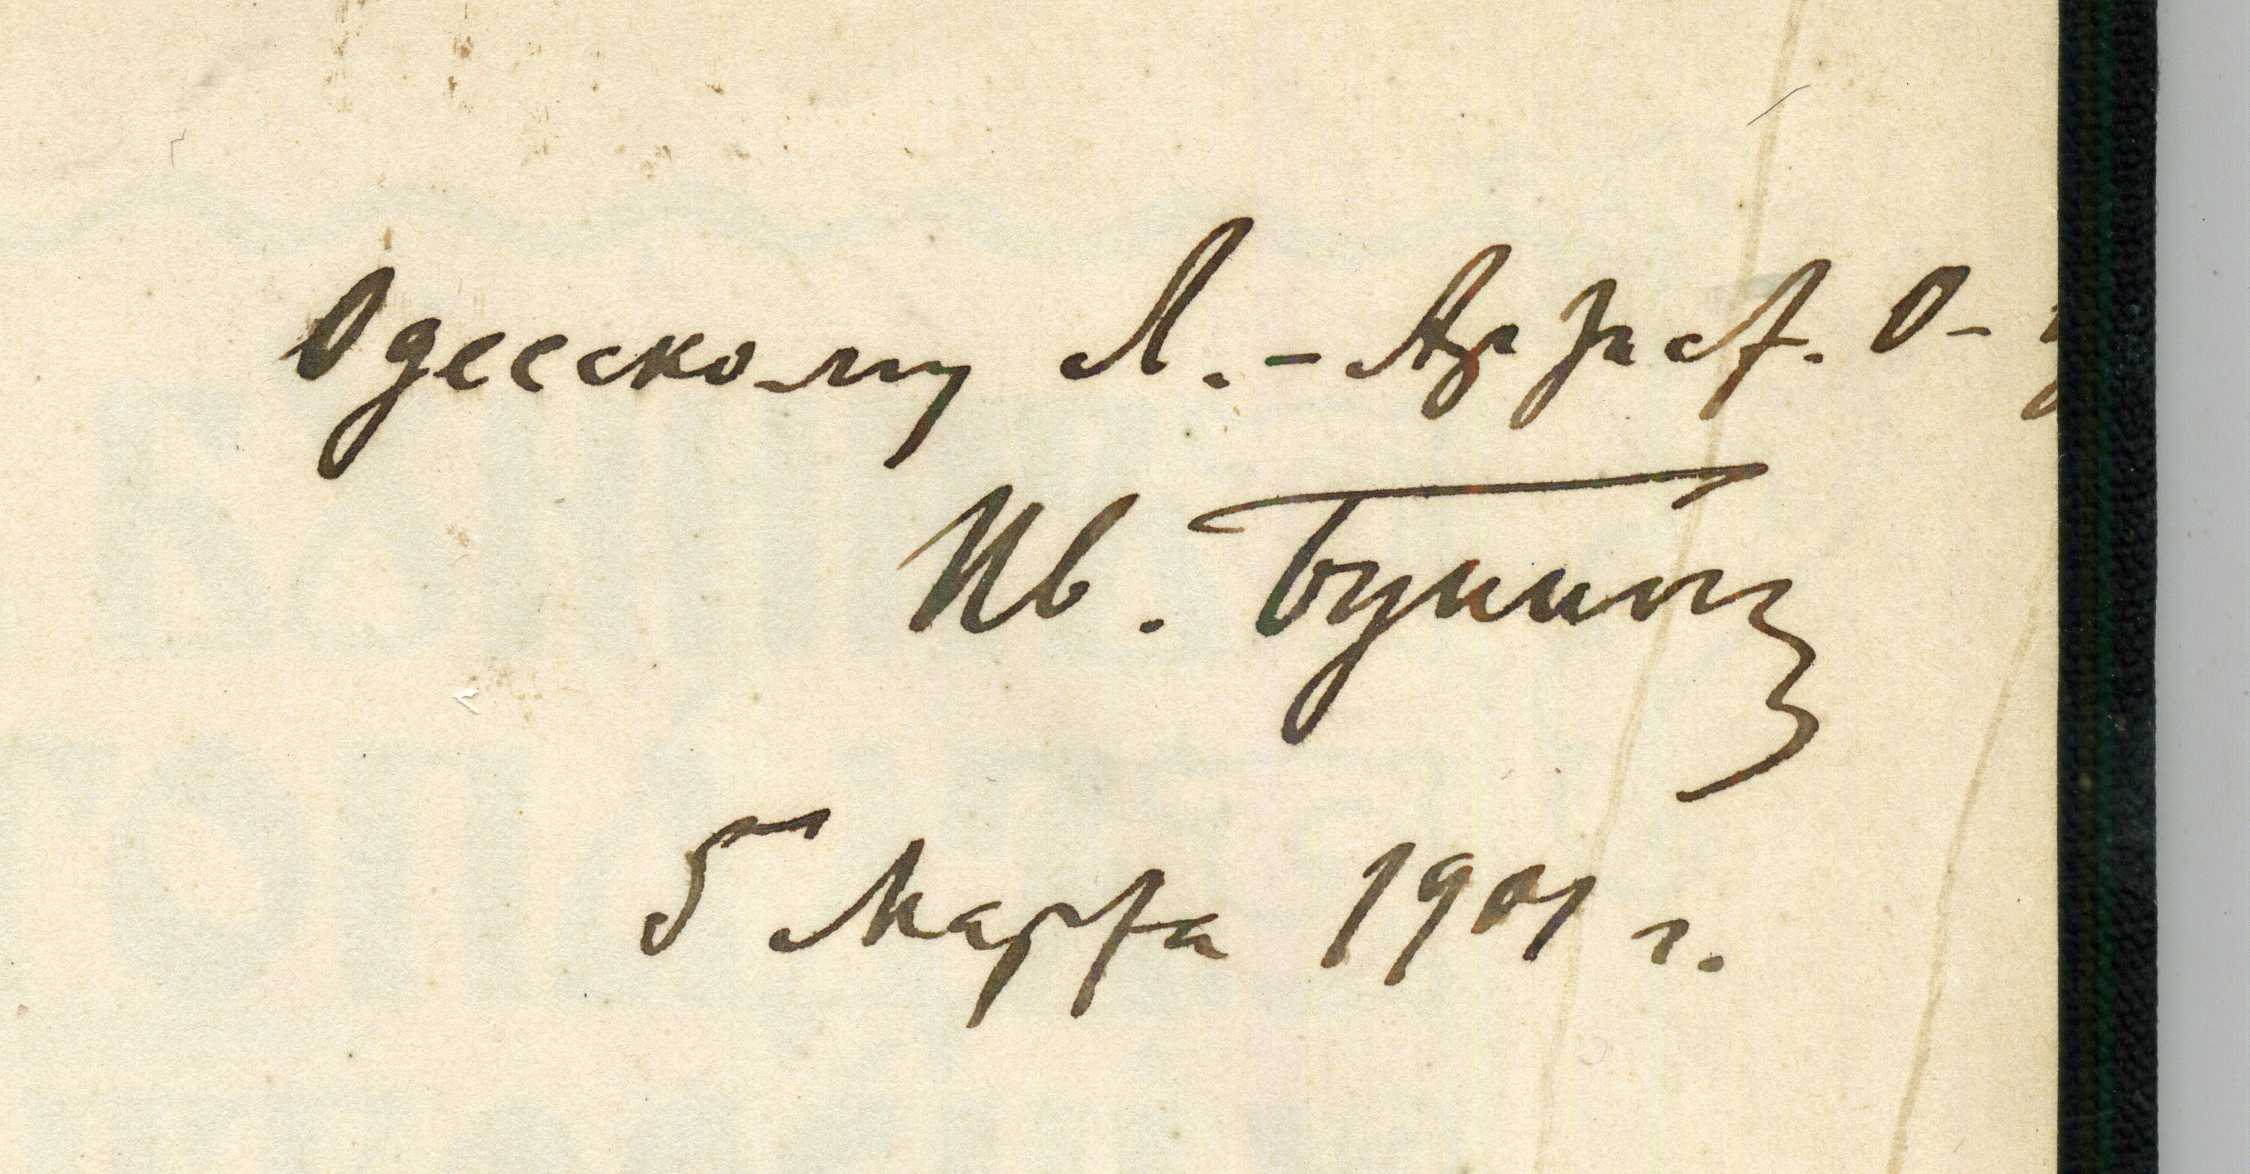 Одесскому Л.-Артист. О-у
Ив. Бунинъ
5 Марта 1901 г.